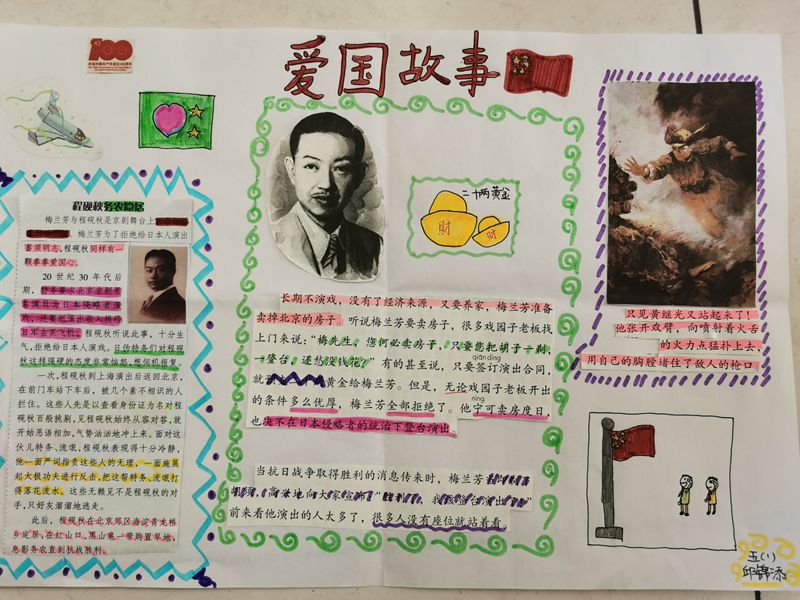 爱国故事
100
程砚秋务农隐居
梅兰芳与程砚秋是京剧舞台上
梅兰芳为了拒绝给日本人演出
蓄须明志，程砚秋同样有一
颗拳拳爱国心。
20世纪30年代后
期，
演员为日本侵略者演
戏，还要把演出收入捐给
日军去买飞机。程砚秋听说此事，十分生
气，拒绝给日本人演戏。日伪特务们对程砚
秋这样强硬的态度非常恼怒，想伺机报复。
一次，程砚秋到上海演出后返回北京，
在前门车站下车后，被几个素不相识的人
拦住。这些人先是以查看身份证为名对程
砚秋百般挑剔，见程砚秋始终从容对答，就
开始恶语相加，气势汹汹地冲上来。面对这
伙儿特务、流氓，程砚秋表现得十分冷静，
他一面严词指责这些人的无理，一面施展
起太极功夫进行反击，把这帮特务、流氓打
得落花流水。这些无赖见不是程砚秋的对
手，只好灰溜溜地逃走。
此后，程砚秋在北京郊区海淀青龙桥
乡定居，在红山口、黑山扈一带购置旱地，
息影务农直到抗战胜利。
二十两黄金
财
财
长期不演戏，没有了经济来源，又要养家，梅兰芳准备
卖掉北京的房子。听说梅兰芳要卖房子，很多戏园子老板找
上门来说：“梅先生，您何必卖房子，只要您把胡子一剃，
一登台，还愁没钱花？”有的甚至说，只要签订演出合同，
qiān dìng
就
黄金给梅兰芳。但是，无论戏园子老板开出
的条件多么优厚，梅兰芳全部拒绝了。他宁可卖房度日，
nìng
也决不在日本侵略者的统治下登台演出。
当抗日战争取得胜利的消息传来时，梅兰芳
前来看他演出的人太多了，很多人没有座位就站着看。
只见黄继光又站起来了！
他张开双臂，向喷射着火舌
的火力点猛扑上去，
用自己的胸膛堵住了敌人的枪口
五(1)
邱锦添